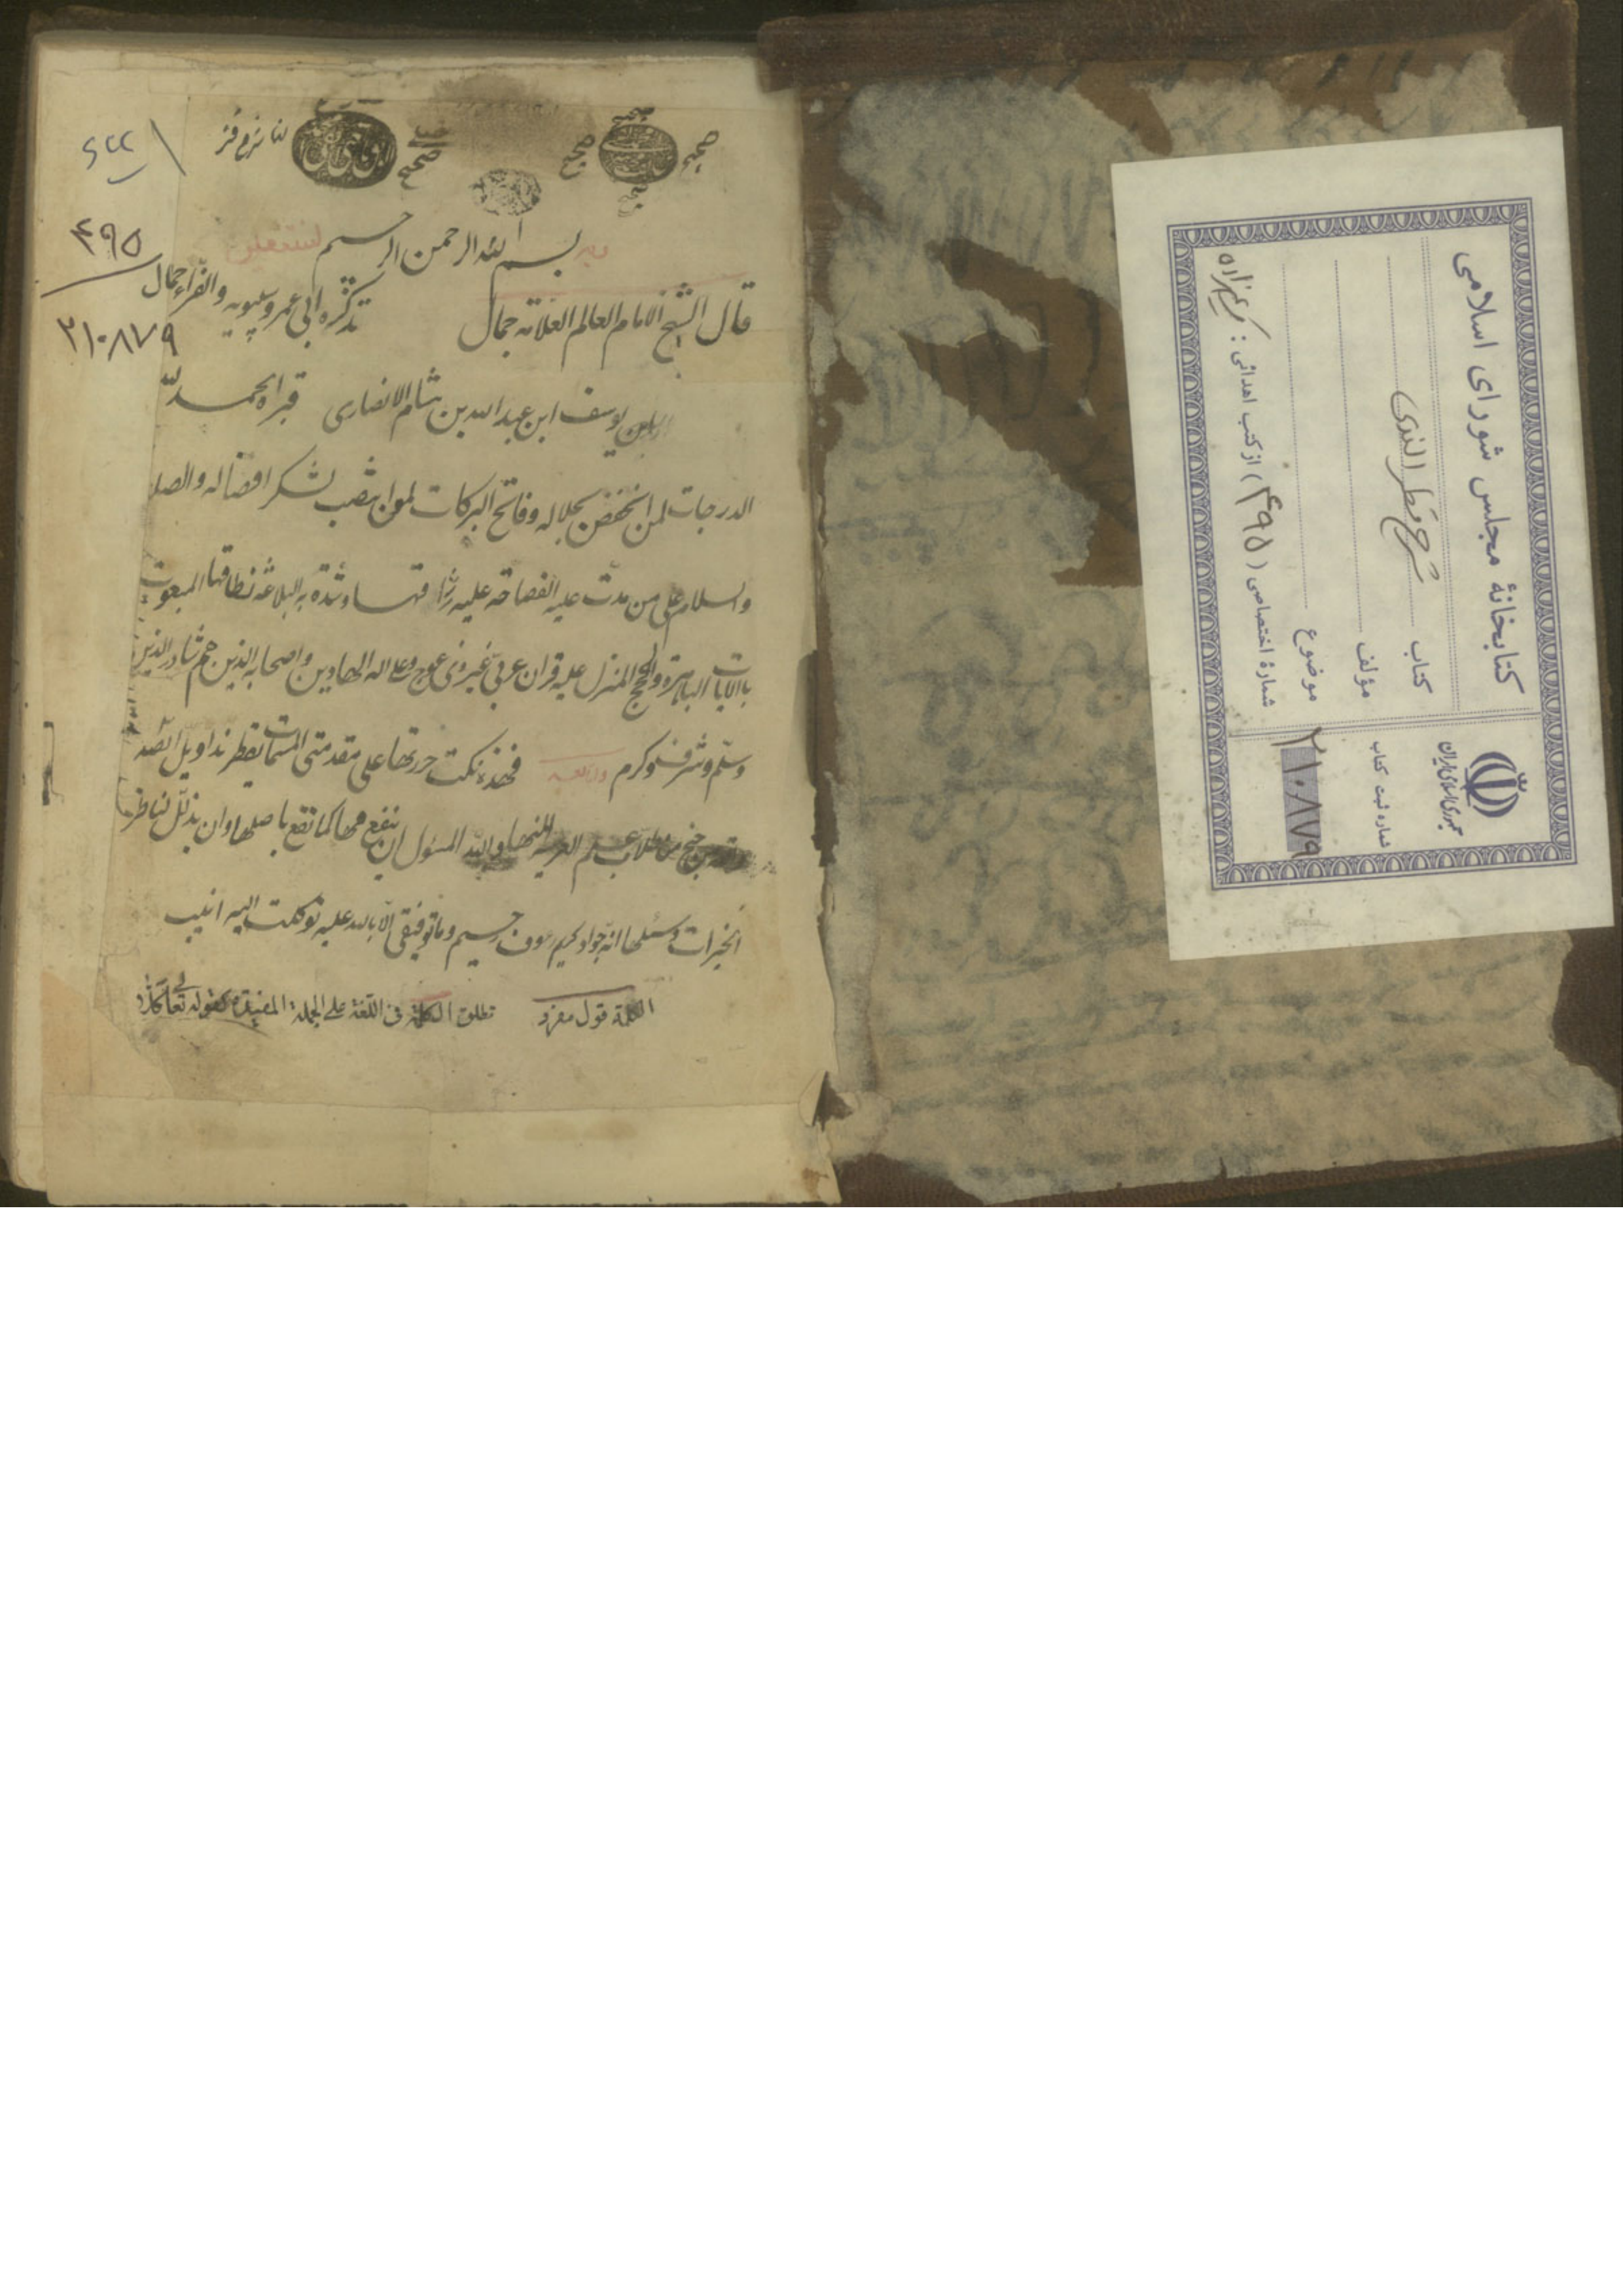 بسم الله الرحمن الرحيم
قال الشيخ الامام العالم العلامة جمال
تذكرة ابى عمرو سيبويه والفراء جمال
بن يوسف ابن عبد الله بن هشام الانصارى قبره الحمد لله
الدرجات لمن انخفض بجلاله وفاتح البركات لمن انتصب لشكر افضاله والصلا
والسلام على من مدت عليه الفصاحة عليه رواقها وشدة به البلاغة نطاقها المبعوث
بالايات الباهرة والحجج المنزل عليه قران عربى غير ذى عوج وعلى اله الهادين واصحابه الذين هم شادو الدين
وسلم وشرف وكرم فهذه نكت حررتها على مقدمتى المسمات بقطر ندا وبل الصد
جنح من طلاب علم العربيه اليها والله المسئول ان ينفع بها كما نفع باصلها وان يذلل لنا طر
الخيرات وسبلها انه جواد كريم روف رحيم وما توفيقى الا بالله عليه توكلت اليه انيب
الكلمة قول مفرد تطلق الكلمة فى اللغة على الجملة المفيدة كقوله تعالى
۴۹۵
۲۱۰۸۷۹
کتابخانهٔ مجلس شورای اسلامی
کتاب شرح قطر الندى
مؤلف
موضوع
شمارهٔ اختصاصی ( ۴۹۵ ) از کتب اهدائی :
جمهوری اسلامی ایران
شماره ثبت کتاب
۲۱۰۸۷۹